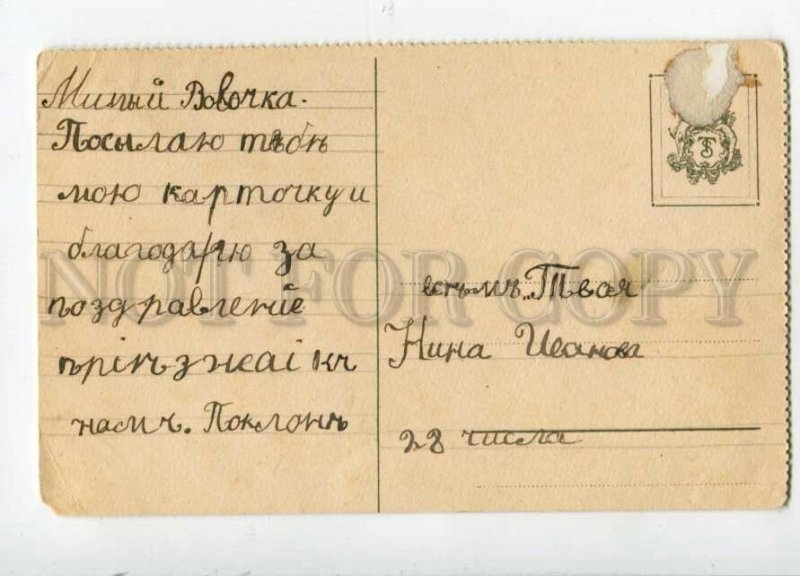 Милый Вовочка.
Посылаю тѣбѣ
мою карточку и
благодарю за
поздравленіе
пріѣзжаі къ
намъ. Поклонъ
всѣмъ. Твоя
Нина Иванова
28 числа
TS
NOT FOR COPY